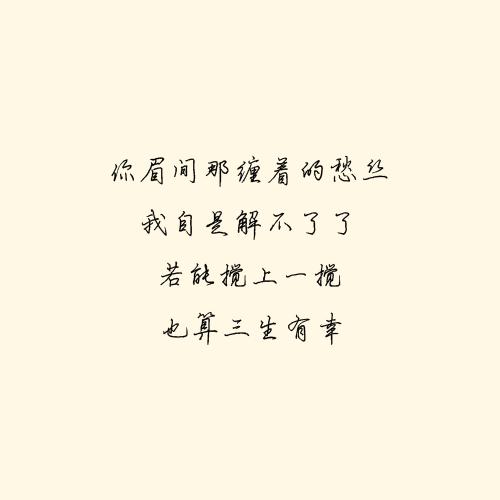 你眉间那缠着的愁丝
我自是解不了了
若能搅上一搅
也算三生有幸